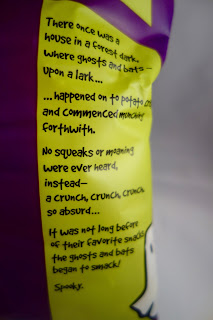 There once was a
house in a forest dark,
where ghosts and bats
upon a lark...
...happened on to potato
and commenced munching
forthwith.
No squeaks or moaning
were ever heard,
instead—
a crunch, crunch, crunch,
so absurd...
It was not long before
of their favorite snacks
the ghosts and bats
began to smack!
Spooky.